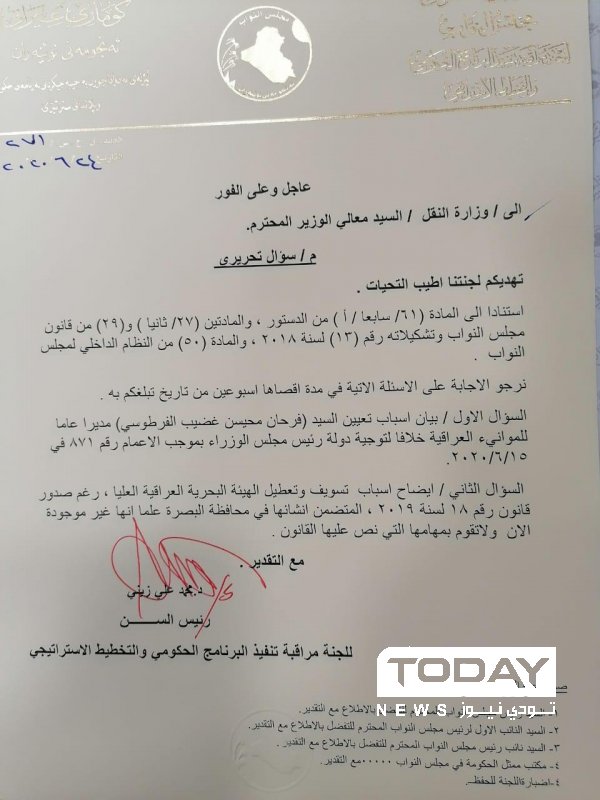 مجلس النواب
عاجل وعلى الفور
الى / وزارة النقل / السيد معالي الوزير المحترم.
م / سؤال تحريري
تهديكم لجنتنا اطيب التحيات .
استنادا الى المادة (٦١/ سابعا / أ ) من الدستور ، والمادتين (٢٧/ ثانيا ) و(٢٩) من قانون
مجلس النواب وتشكيلاته رقم (١٣) لسنة ٢٠١٨ ، والمادة (٥٠) من النظام الداخلي لمجلس
النواب .
نرجو الاجابة على الاسئلة الاتية في مدة اقصاها اسبوعين من تاريخ تبلغكم به .
السؤال الاول / بيان اسباب تعيين السيد (فرحان محيسن غضيب الفرطوسي) مديرا عاما
للموانيء العراقية خلافا لتوجية دولة رئيس مجلس الوزراء بموجب الاعمام رقم ٨٧١ في
٢٠٢٠/٦/١٥.
السؤال الثاني / ايضاح اسباب تسويف وتعطيل الهيئة البحرية العراقية العليا ، رغم صدور
قانون رقم ١٨ لسنة ٢٠١٩ ، المتضمن انشائها في محافظة البصرة علما انها غير موجودة
الان ولاتقوم بمهامها التي نص عليها القانون .
مع التقدير .
د.محمد علي زيني
رئيس السن
للجنة مراقبة تنفيذ البرنامج الحكومي والتخطيط الاستراتيجي
TODAY
NEWS تـودي نيـوز
للتفضل بالاطلاع مع التقدير.
٢- السيد النائب الاول لرئيس مجلس النواب المحترم للتفضل بالاطلاع مع التقدير.
٣- السيد نائب رئيس مجلس النواب المحترم للتفضل بالاطلاع مع التقدير.
٤- مكتب ممثل الحكومة في مجلس النواب ٠٠٠٠٠مع التقدير.
٤-اضبارةاللجنة للحفظ.